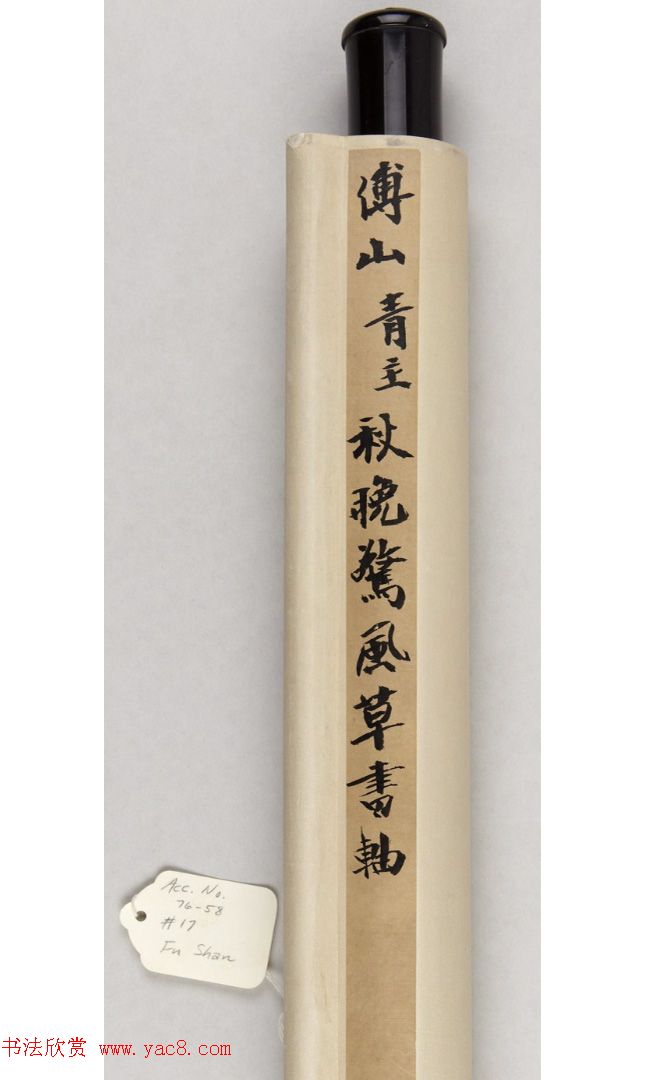 傅山 青主 秋晚驚風草書軸
Acc. No.
76-58
#17
Fu Shan
书法欣赏 www.yac8.com